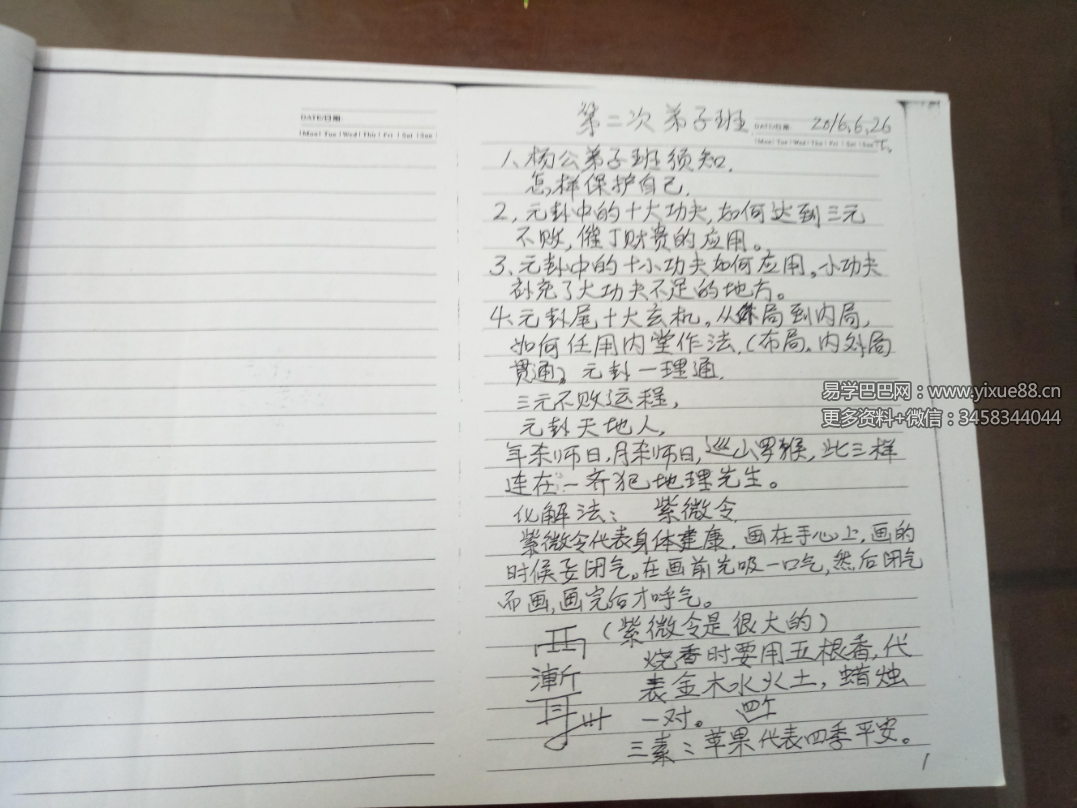 DATE/日期
Mon Tue Wed Thu Fri Sat Sun
第二次弟子班 DATE/日期 2016.6.26
Mon Tue Wed Thu Fri Sat Sun
1、杨公弟子班须知.
怎样保护自己.
2, 元卦中的十大功夫,如何达到三元
不败,催丁财贵的应用。
3、元卦中的十小功夫如何应用。小功夫
补充了大功夫不足的地方。
4、元卦尾十大玄机。从外局到内局,
如何任用内堂作法.(布局.内外局
贯通)。元卦一理通.
三元不败运程,
元卦天地人,
年杀师日,月杀师日,巡山罗猴,此三样
连在一齐犯地理先生。
化解法: 紫微令
紫微令代表身体健康.画在手心上,画的
时候要闭气。在画前先吸一口气,然后闭气
而画,画完后才呼气。
(紫微令是很大的)
烧香时要用五根香,代
渐
表金木水火土,蜡烛
一对。 四个
三素:苹果代表四季平安。
1
易学巴巴网:www.yixue88.cn
更多资料+微信:3458344044